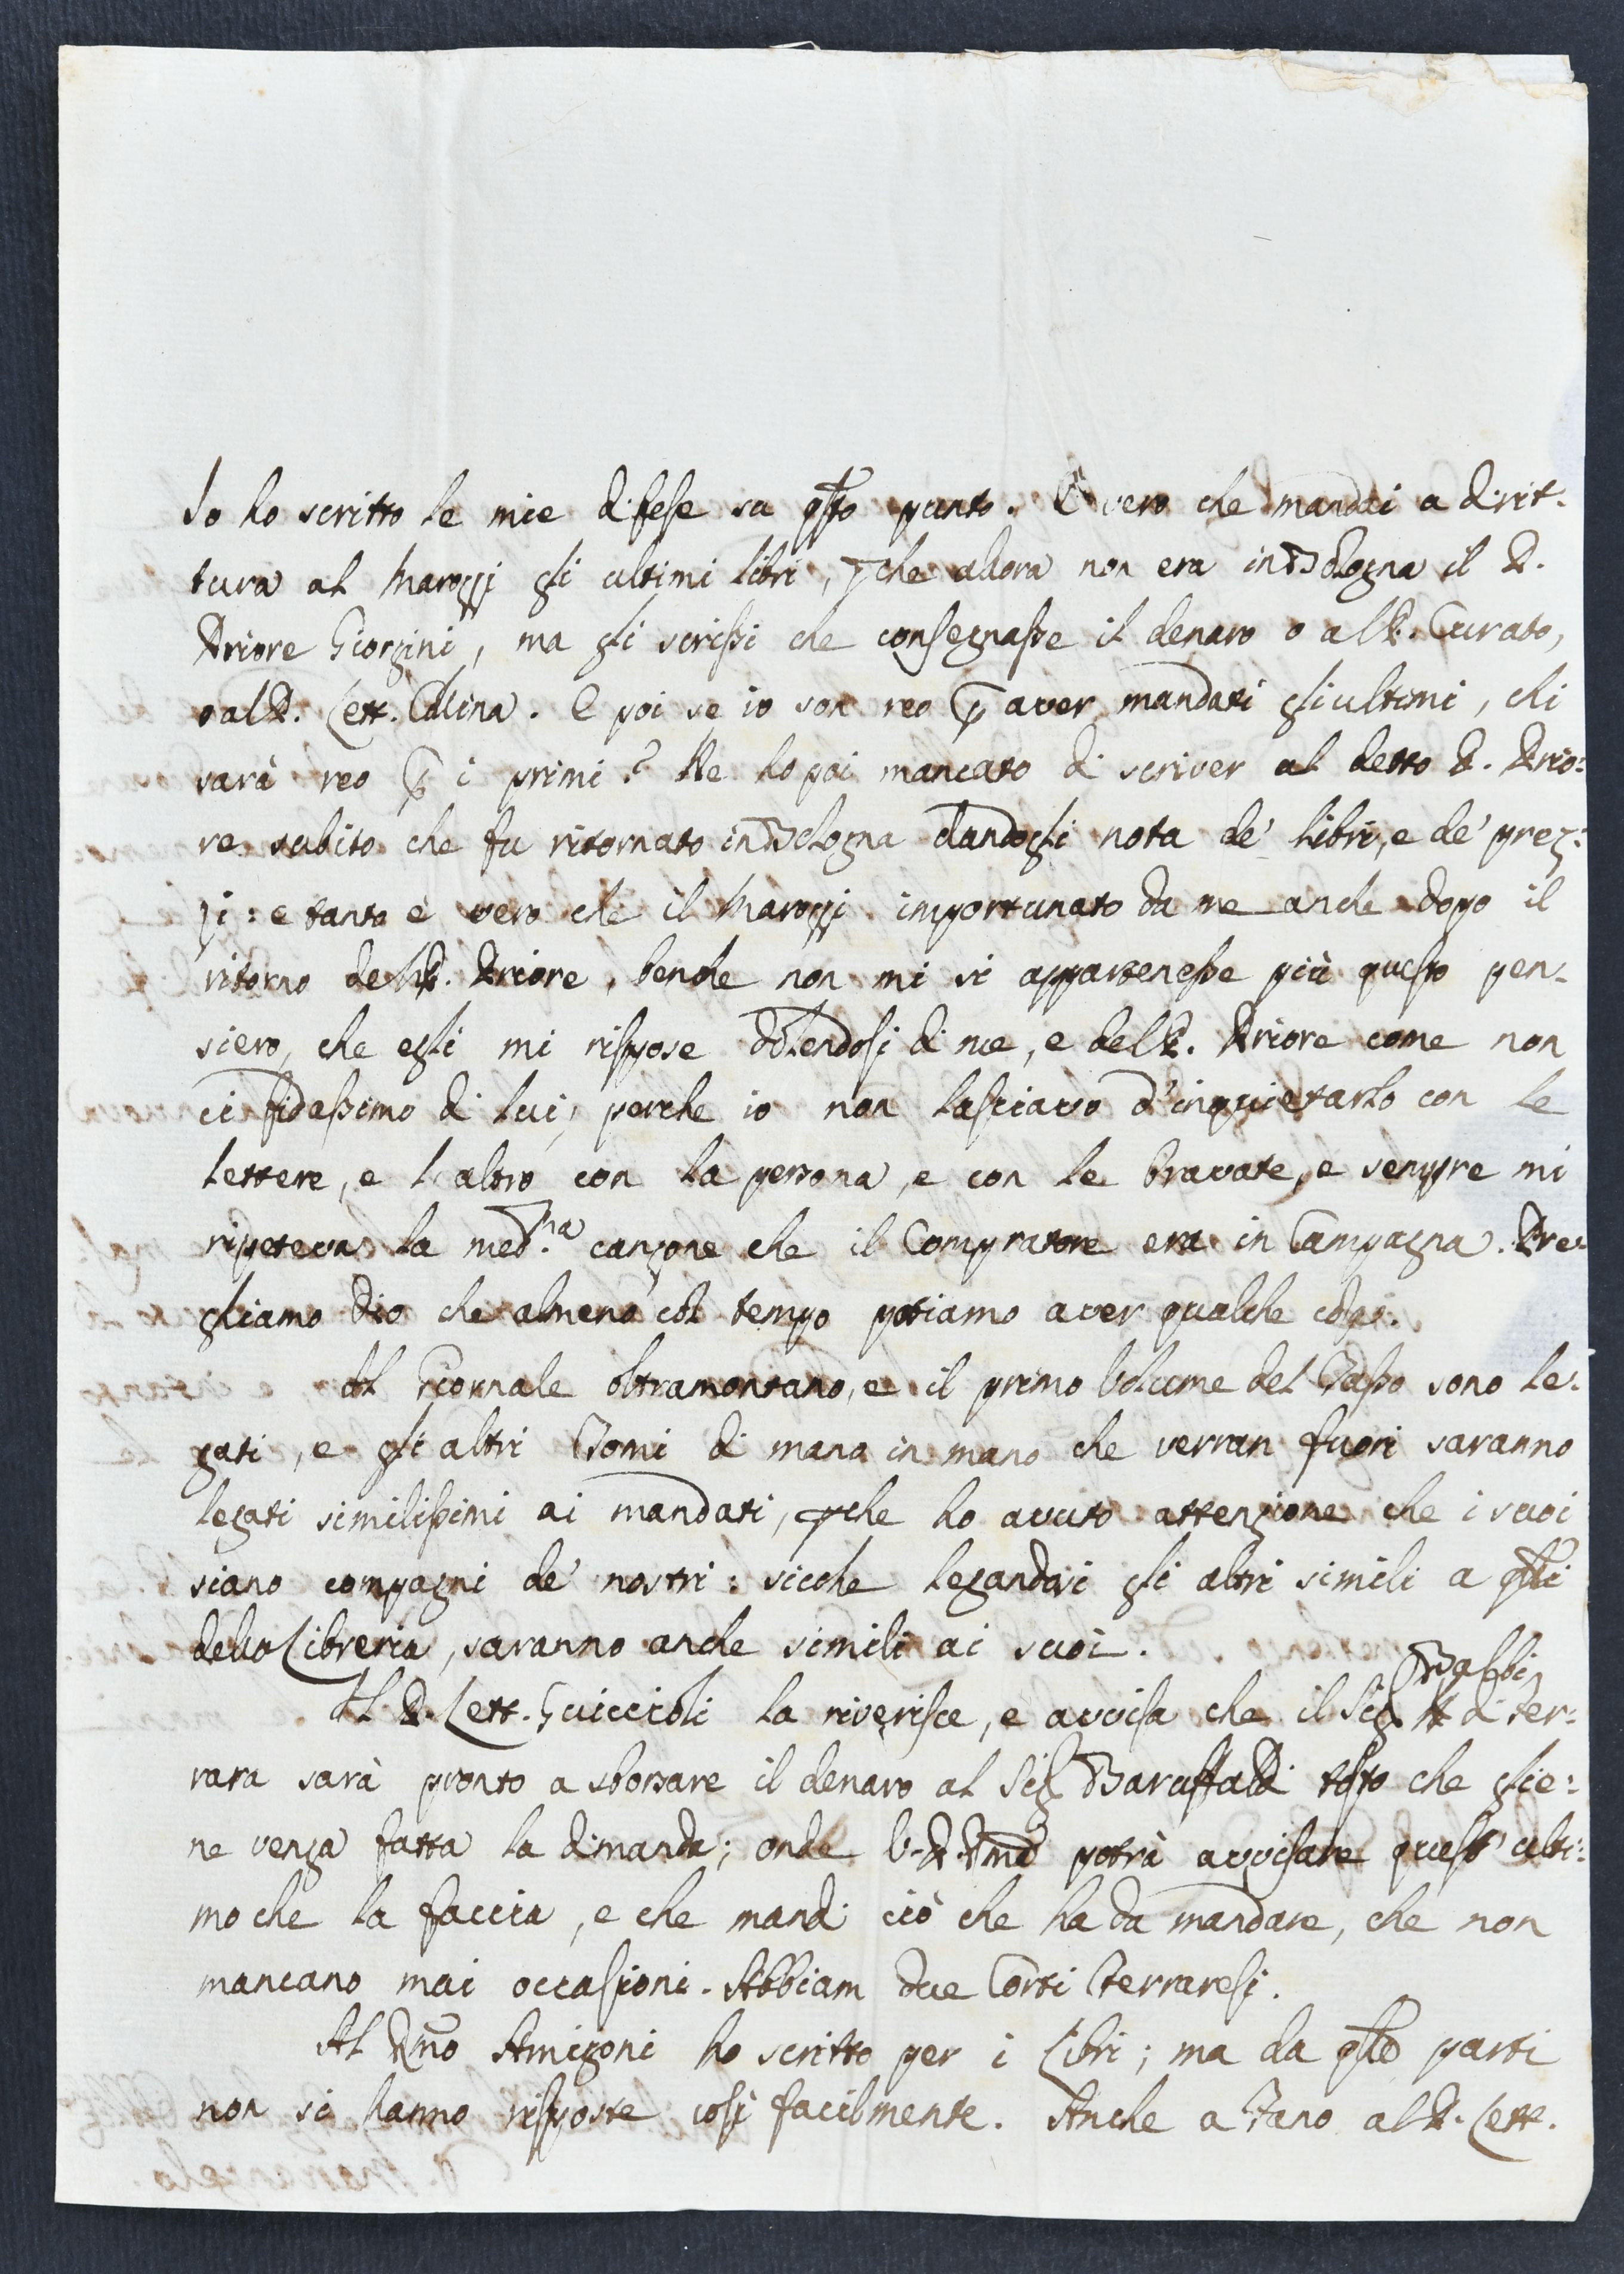 Io ho scritto le mie difese su qsto punto. È vero che mandai a drit-
tura al Maroggi gli ultimi libri, pche allora non era in Bologna il P.
Priore Giorgini, ma gli scrissi che consegnasse il denaro o al P. Curato,
o al P. Lett. Collina. E poi se io son reo p aver mandati gli ultimi, chi
sarà reo p i primi? Ne ho poi mancato di scriver al detto P. Prio:
re subito che fu ritornato in Bologna dandogli nota de' libri, e de' prez:
zi: e tanto è vero che il Maroggi importunato da me anche dopo il
ritorno del P. Priore, benche non mi si appartenesse più questo pen-
siero, che egli mi rispose dolendosi di me, e del P. Priore come non
ci fidassimo di lui, perche io non lasciavo d'inquietarlo con le
lettere, e l'altro con la persona, e con le bravate, e sempre mi
ripeteva la med.ma canzone che il Compratore era in Campagna. Pre-
ghiamo Dio che almeno col tempo potiamo aver qualche cosa.
Il Giornale oltramontano, e il primo Volume del Tasso sono le:
gati, e gli altri Tomi di mano in mano che verran fuori saranno
legati similissimi ai mandati, pche ho avuto attenzione che i suoi
siano compagni de' nostri: sicche legandosi gli altri simili a qlli
della Libreria, saranno anche simili ai suoi.
Balbi
Il P. Lett. Guiccioli la riverisce, e avvisa che il Sig. di Fer:
rara sarà pronto a sborsare il denaro al Sig. Baruffaldi tosto che glie:
ne venga fatta la dimanda; onde V. P. Rma potrà avvisare quest' ulti:
mo che la faccia, e che mandi ciò che ha da mandare, che non
mancano mai occasioni. Abbiam due Corsi Ferraresi.
Al Rmo Amigoni ho scritto per i Libri; ma da qlle parti
non si hanno risposte così facilmente. Anche a Fano al P. Lett.